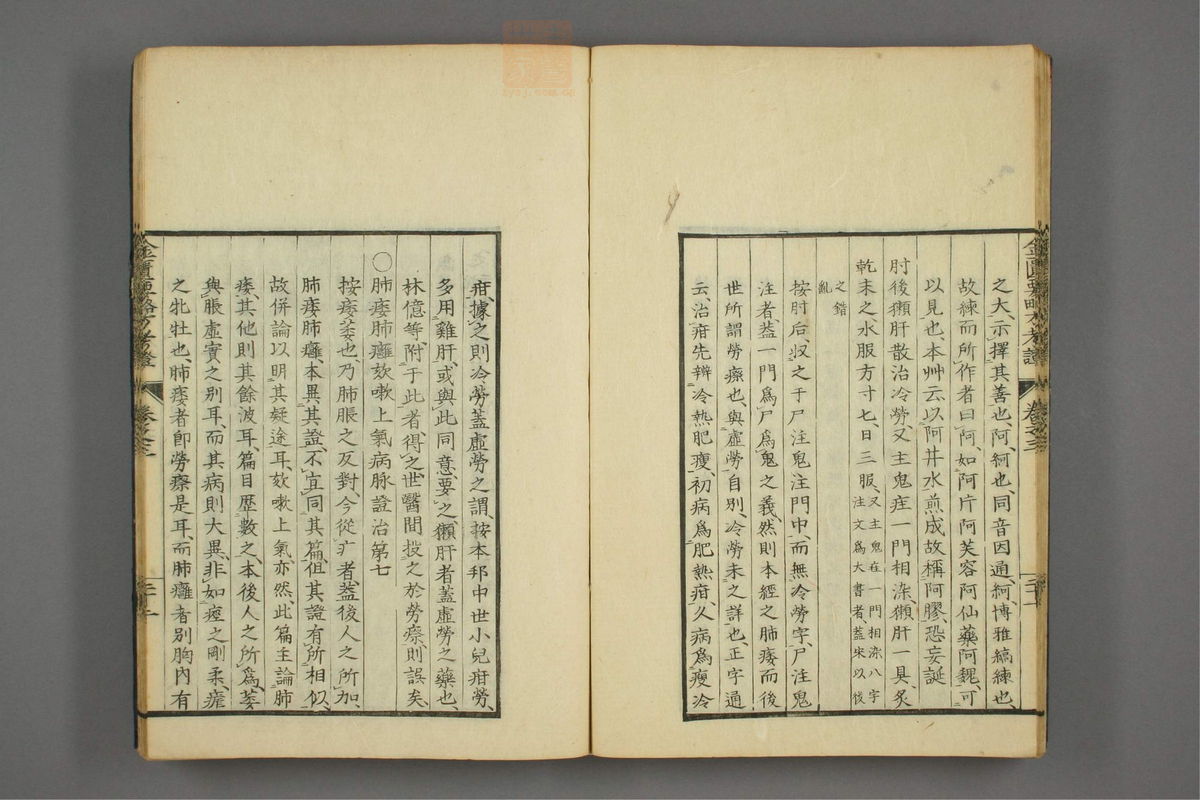 之大、示擇其善也、阿、綗也、同音因通、綗、博雅縞練也、
故練而所作者曰阿、如阿片阿芙容阿仙藥阿魏、可
以見也、本艸云、以阿井水煎成故稱阿膠、恐妄誕
肘後獺肝散治冷勞又主鬼疰一門相染、獺肝一具、炙
乾末之水服方寸七、日三服、又主鬼疰一門相染八字
注文爲大書者、蓋宋以後
之錯
亂
按肘后、収之于尸注鬼注門中、而無冷勞字、尸注鬼
注者、蓋一門爲尸爲鬼之義、然則本經之肺痿而後
世所謂勞瘵也、與虛勞自別、冷勞未之詳也、正字通
云、治疳先辨冷熱肥瘦、初病爲肥熱疳、久病爲瘦冷
疳、據之則冷勞蓋虛勞之謂、按本邦中世小兒疳勞、
多用雞肝、或與此同意、要之、獺肝者蓋虛勞之藥也、
林億等、附于此者得之、世醫間投之於勞瘵則誤矣、
〇肺痿肺癰欬嗽上氣病脉證治第七
按痿、萎也、乃肺脹之反對、今從疒者、蓋後人之所加、
肺痿肺癰、本異其證、不宜同其篇、但其證有所相似、
故併論以明其疑途耳、欬嗽上氣亦然、此篇主論肺
痿、其他則其餘波耳、篇目歷數之、本後人之所爲、萎
與脹虛實之別耳、而其病則大異、非如痙之剛柔、瘧
之牝牡也、肺痿者卽勞瘵是耳、而肺癰者別胸內有
金匱要略方考證
卷之三